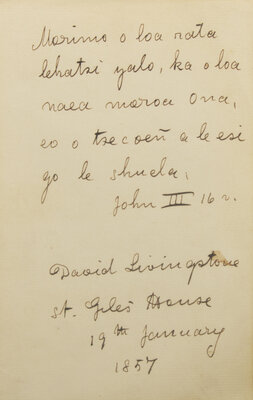 Morimo o loa rata
lehatsi yalo, ka o loa
naea moroa Ona,
eo o tsecoeñ a le esi
go le shuela,
John III 16 v.
David Livingstone
St. Giles House
19th January
1857